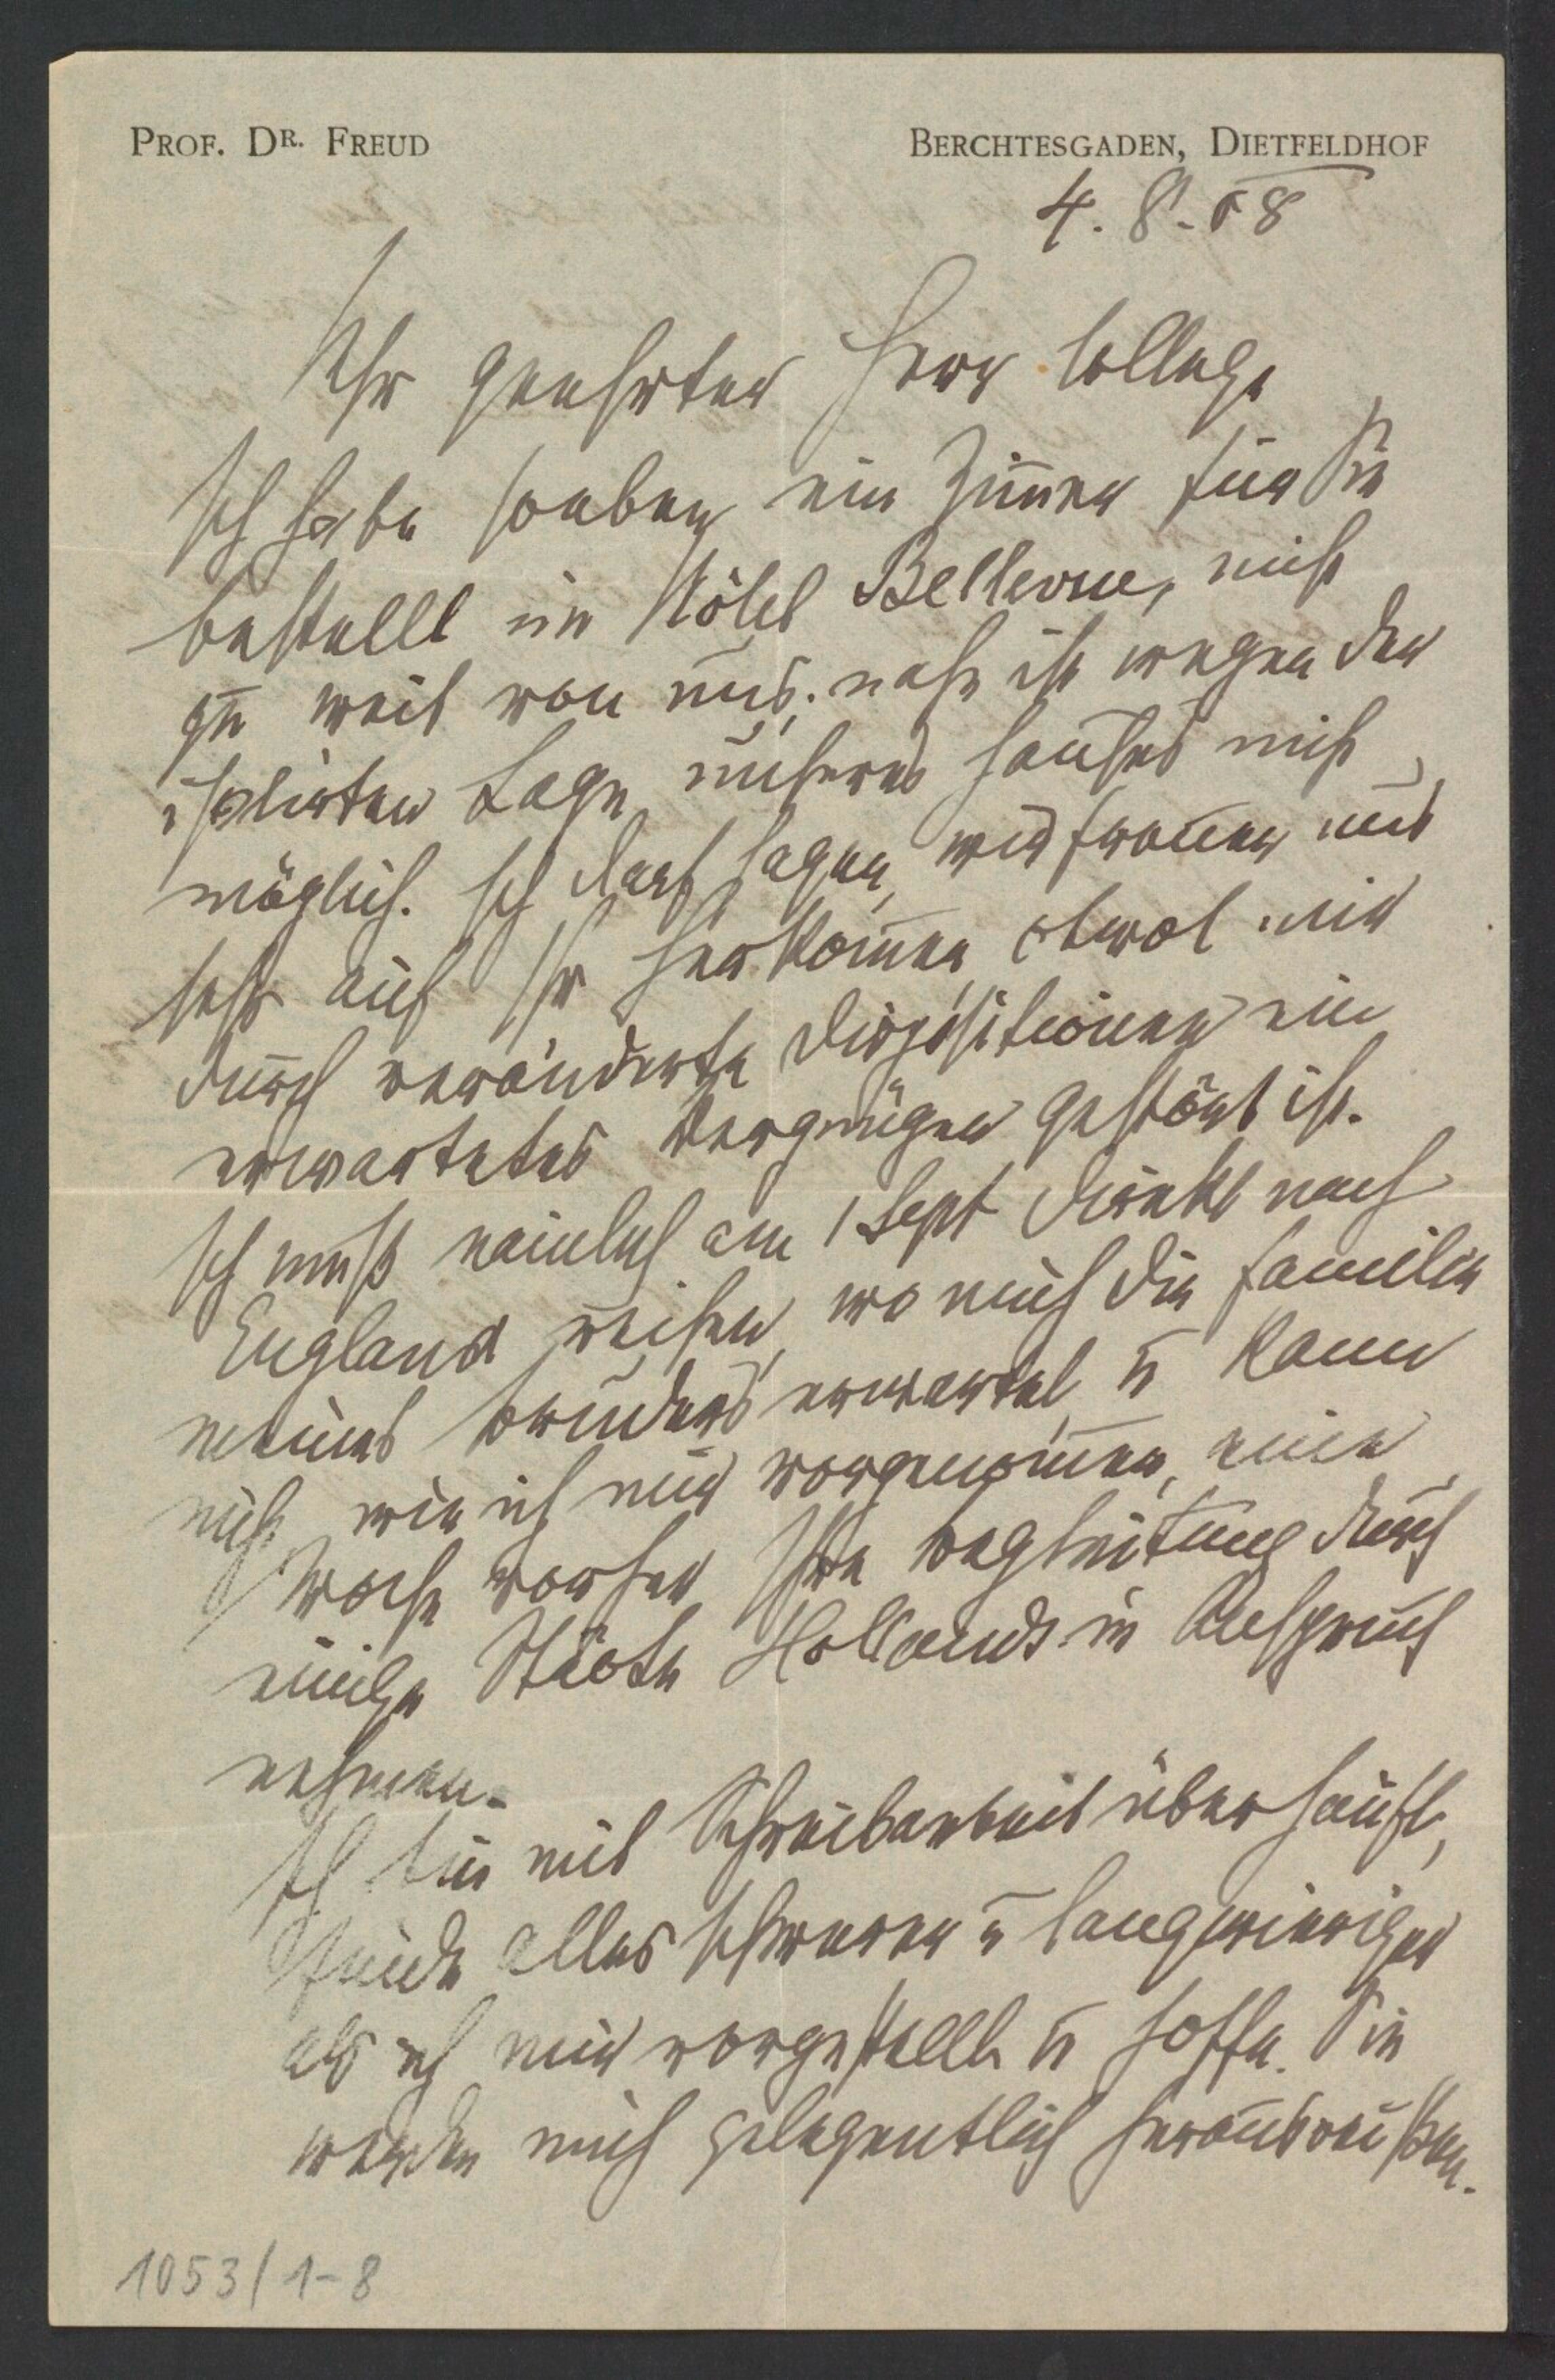 PROF. DR. FREUD
BERCHTESGADEN, DIETFELDHOF
4. 8. 08
Sehr geehrter Herr College
Ich habe soeben ein Zim̅er für Sie
bestellt im Hôtel Bellevue, nicht
zu weit von uns; näher ist wegen der
isolirten Lage unseres Hauses nicht
möglich. Ich darf sagen, wir freuen uns
sehr auf Ihr Herkom̅en, obwol mir
durch veränderte Dispositionen ein
erwartetes Vergnügen gestört ist.
Ich muß nämlich am 1 Sept direkt nach
England reisen, wo mich die Familie
meines Bruders erwartet, u kann
nicht, wie ich mir vorgenom̅en, eine
Woche vorher Ihre Begleitung durch
einige Städte Hollands in Anspruch
nehmen.
Ich bin mit Schreibarbeit überhäuft,
finde alles schwerer u langwieriger
als ich mir vorgestellt u hoffe, Sie
werden mich gelegentlich herausreißen.
1053/1-8